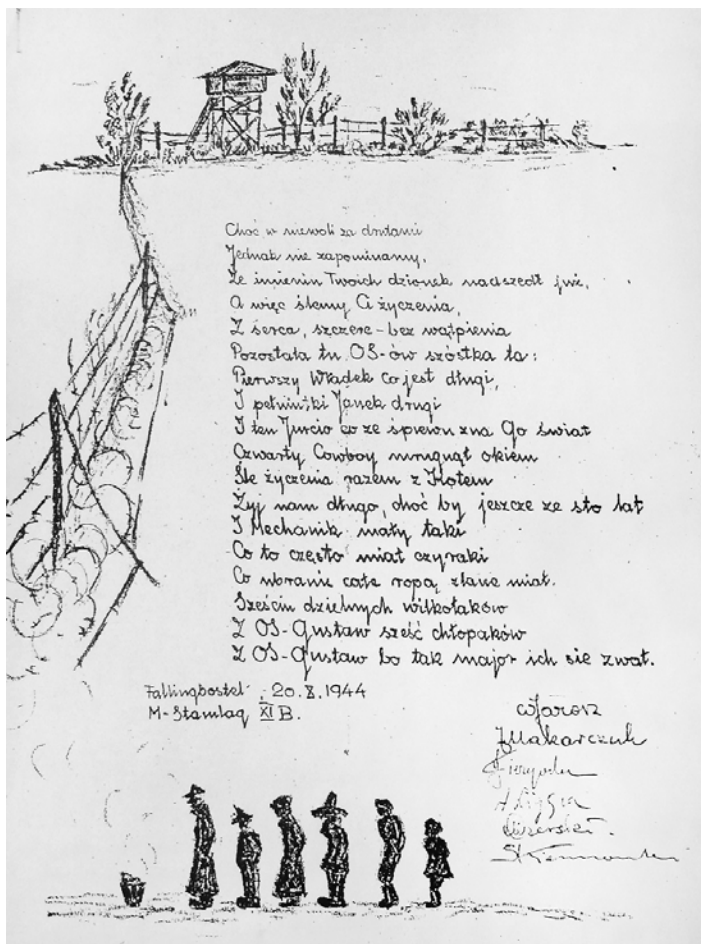 Choć w niewoli za drutami
Jednak nie zapominamy,
Że imienin Twoich dzionek nadszedł już,
A więc ślemy Ci życzenia,
Z serca, szczere - bez wątpienia
Pozostała tu OS-ów szóstka ta:
Pierwszy Władek co jest długi,
I pełniutki Janek drugi
I ten Jurcio co ze śpiewu zna Go świat
Czwarty Cowboy mrugnął okiem
Śle życzenia razem z Kotem
Żyj nam długo, choć by jeszcze ze sto lat
I Mechanik mały taki
Co to często miał czyraki
Co ubranie całe ropą zlane miał.
Sześciu dzielnych wilkołaków
Z OS-Gustaw sześć chłopaków
Z OS-Gustaw bo tak major ich się zwał.
Fallingbostel, 20.X.1944
M-Stamlag XI B.
WJarosz
JMakarczuk